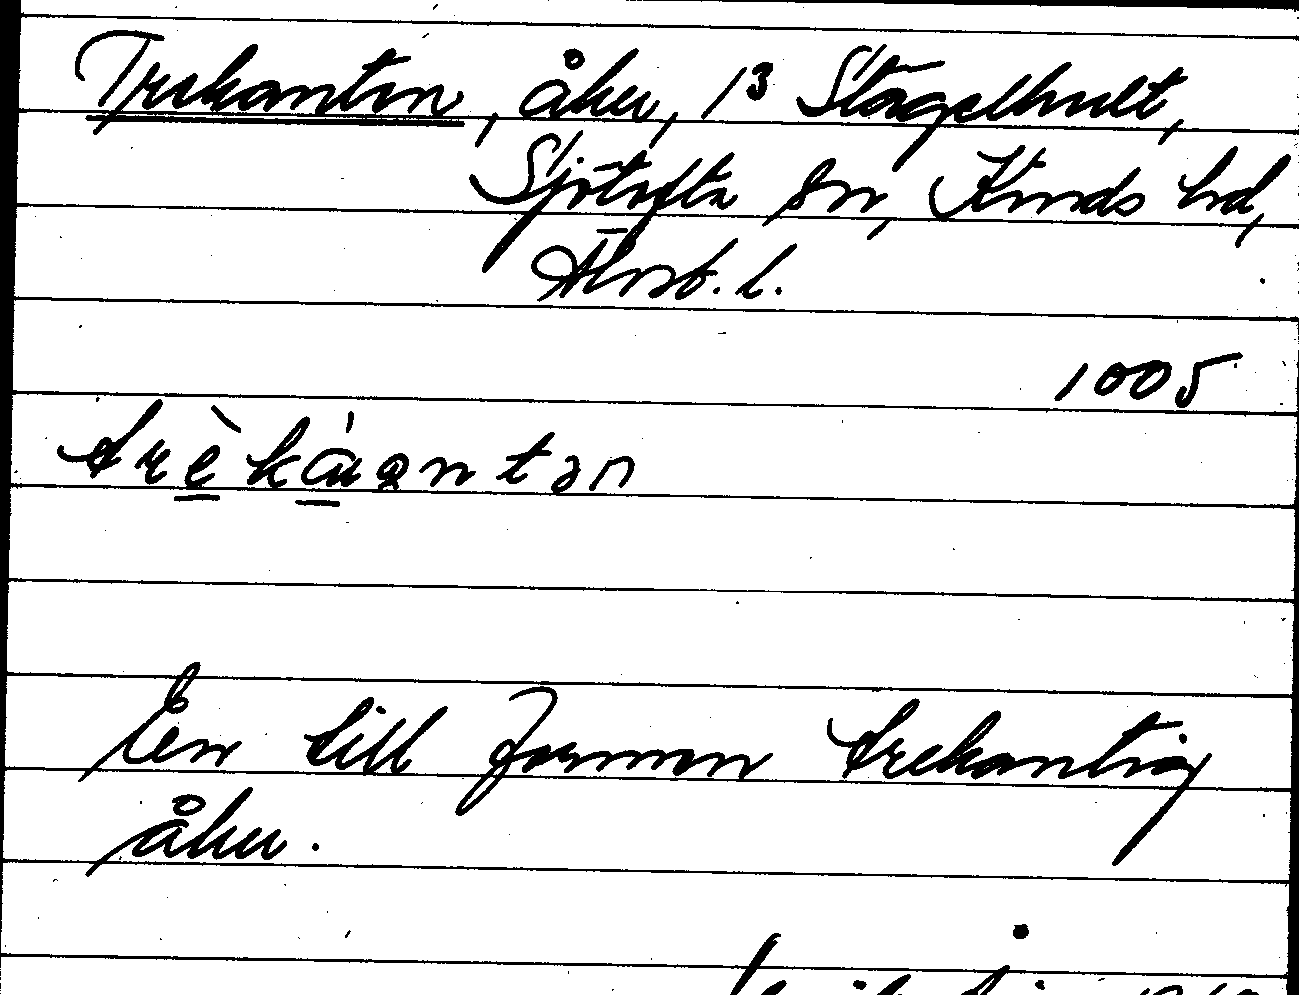 Trekanten, åker, 1³ Stägelhult,
Sjötofta sn, Kinds hd,
Älvsb. l.
1005
trèkáantən
En till formen trekantig
åker.